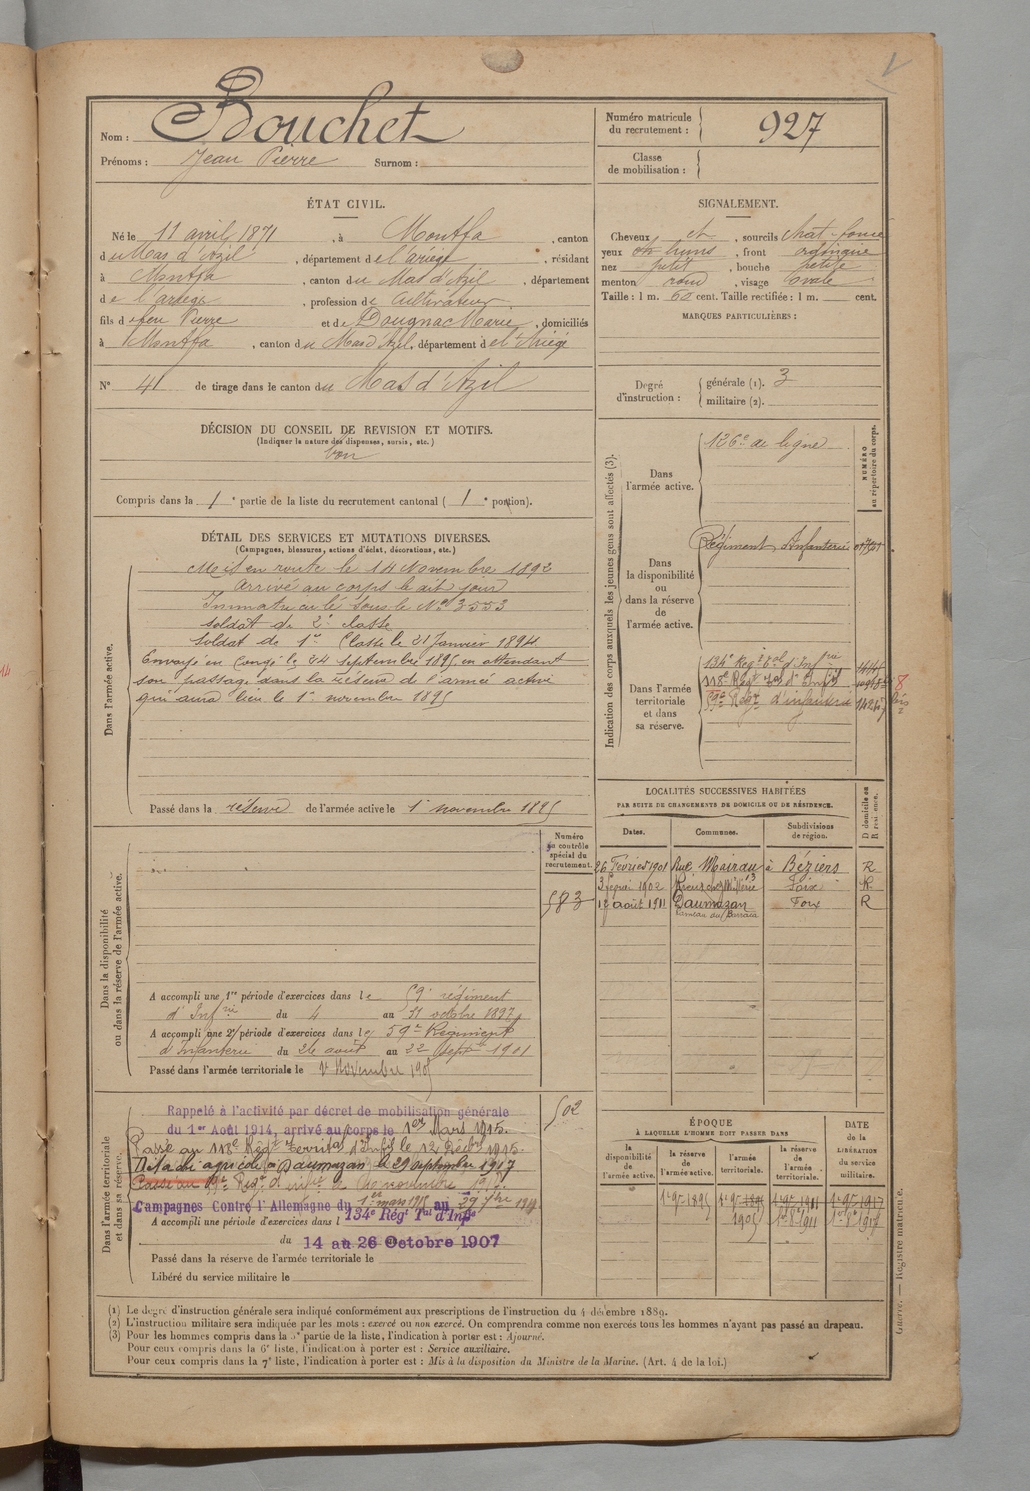 Nom : Bouchet
Prénoms : Jean Pierre Surnom :
Numéro matricule du recrutement : 927
Classe de mobilisation :
ÉTAT CIVIL.
Né le 11 avril 1871, à Montfa, canton
du Mas d'Azil, département de l'ariège, résidant
à Montfa, canton du Mas d'Azil, département
de l'ariège, profession de Cultivateur
fils de feu Pierre et de Dougnac Marie, domiciliés
à Montfa, canton du Mas d'Azil, département de l'Ariège
N° 41 de tirage dans le canton du Mas d'Azil
SIGNALEMENT.
Cheveux et sourcils chat. foncé
yeux bruns, front ordinaire
nez petit, bouche petite
menton rond, visage ovale
Taille : 1 m. 60 cent. Taille rectifiée : 1 m. cent.
MARQUES PARTICULIÈRES :
Degré d'instruction : générale (1). 3
militaire (2).
DÉCISION DU CONSEIL DE REVISION ET MOTIFS.
(Indiquer la nature des dispenses, sursis, etc.)
bon
Compris dans la 1e partie de la liste du recrutement cantonal ( 1e portion).
DÉTAIL DES SERVICES ET MUTATIONS DIVERSES.
(Campagnes, blessures, actions d'éclat, décorations, etc.)
Dans l'armée active.
Mis en route le 14 Novembre 1892
arrivé au corps le dit jour
Immatriculé sous le N° 3553
soldat de 2e classe
soldat de 1re Classe le 21 Janvier 1894
Envoyé en Congé le 24 septembre 1895 en attendant
son passage dans la réserve de l'armée active
qui aura lieu le 1er novembre 1895
Passé dans la réserve de l'armée active le 1er novembre 1895
Indication des corps auxquels les jeunes gens sont affectés (3).
NUMÉRO au répertoire du corps.
Dans l'armée active.
126e de ligne
Dans la disponibilité ou dans la réserve de l'armée active.
Régiment Infanterie
Dans l'armée territoriale et dans sa réserve.
134e Régt Tal d'Infrie
118e Régt Tal d'Infie
Régt d'infanterie
LOCALITÉS SUCCESSIVES HABITÉES
PAR SUITE DE CHANGEMENTS DE DOMICILE OU DE RÉSIDENCE.
Dates. Communes. Subdivisions de région. D domicile ou R résidence.
26 Février 1901 Rue Mairan à Béziers R
1902 Foix R
17 août 1911 Daumazan Foix R
Dans la disponibilité ou dans la réserve de l'armée active.
Numéro au contrôle spécial du recrutement.
583
A accompli une 1re période d'exercices dans le 59e régiment
d'Infrie du 4 au 31 octobre 1897
A accompli une 2e période d'exercices dans le 59e Régiment
d'Infanterie du 26 août au 22 Septbre 1901
Passé dans l'armée territoriale le 1er Novembre 1905
Dans l'armée territoriale et dans sa réserve.
502
Rappelé à l'activité par décret de mobilisation générale
du 1er Août 1914, arrivé au corps le 1er Mars 1915.
Passé au 118e Régt Territal d'Infie le 12 1915.
Détaché agricole à Daumazan le 29 septembre 1917
Passé au Régt d'infie le novembre 1917.
Campagnes Contre l'Allemagne du 1er mars 1915 au
A accompli une période d'exercices dans l 134e Régt Tal d'Infie
du 14 au 26 Octobre 1907
Passé dans la réserve de l'armée territoriale le
Libéré du service militaire le
ÉPOQUE
À LAQUELLE L'HOMME DOIT PASSER DANS
la disponibilité de l'armée active. la réserve de l'armée active. l'armée territoriale. la réserve de l'armée territoriale.
DATE de la LIBÉRATION du service militaire.
1er 9bre 1895 1er 9bre 1895 1er 9bre 1911 1er 9bre 1917
1905
(1) Le degré d'instruction générale sera indiqué conformément aux prescriptions de l'instruction du 4 décembre 1889.
(2) L'instruction militaire sera indiquée par les mots : exercé ou non exercé. On comprendra comme non exercés tous les hommes n'ayant pas passé au drapeau.
(3) Pour les hommes compris dans la 5e partie de la liste, l'indication à porter est : Ajourné.
Pour ceux compris dans la 6e liste, l'indication à porter est : Service auxiliaire.
Pour ceux compris dans la 7e liste, l'indication à porter est : Mis à la disposition du Ministre de la Marine. (Art. 4 de la loi.)
Guerre. — Registre matricule.